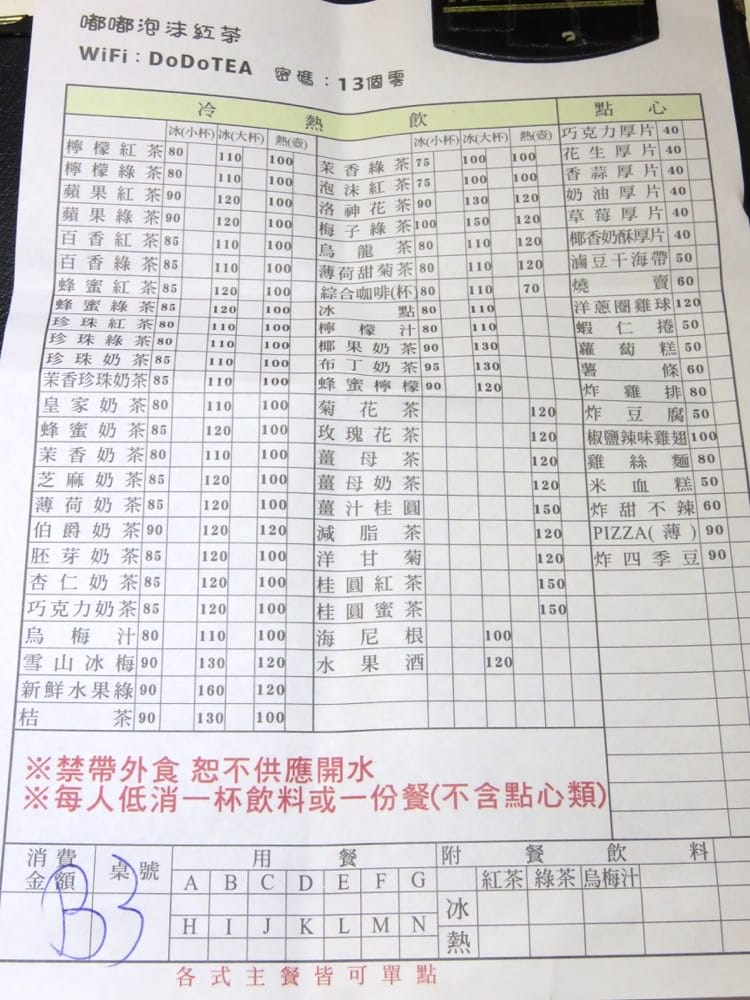 嘟嘟泡沫紅茶
WiFi：DoDoTEA 密碼：13個零
冷 熱 飲
冰(小杯) 冰(大杯) 熱(壺)
檸檬紅茶 80 110 100
檸檬綠茶 80 110 100
蘋果紅茶 90 120 100
蘋果綠茶 90 120 100
百香紅茶 85 110 100
百香綠茶 85 110 100
蜂蜜紅茶 85 120 100
蜂蜜綠茶 85 120 100
珍珠紅茶 80 110 100
珍珠綠茶 80 110 100
珍珠奶茶 85 110 100
茉香珍珠奶茶 85 110 100
皇家奶茶 80 110 100
蜂蜜奶茶 85 120 100
茉香奶茶 80 110 100
芝麻奶茶 85 120 100
薄荷奶茶 85 120 100
伯爵奶茶 90 120 120
胚芽奶茶 85 120 100
杏仁奶茶 85 120 100
巧克力奶茶 85 120 100
烏梅汁 80 110 100
雪山冰梅 90 130 120
新鮮水果綠 90 160 120
桔茶 90 130 100
冰(小杯) 冰(大杯) 熱(壺)
茉香綠茶 75 100 100
泡沫紅茶 75 100 100
洛神花茶 90 130 120
梅子綠茶 100 150 120
烏龍茶 80 110 120
薄荷甜菊茶 80 110 120
綜合咖啡(杯) 80 110 70
冰點 80 110
檸檬汁 80 110
椰果奶茶 90 130
布丁奶茶 95 130
蜂蜜檸檬 90 120
菊花茶 120
玫瑰花茶 120
薑母茶 120
薑母奶茶 120
薑汁桂圓 150
減脂茶 120
洋甘菊 120
桂圓紅茶 150
桂圓蜜茶 150
海尼根 100
水果酒 120
點心
巧克力厚片 40
花生厚片 40
香蒜厚片 40
奶油厚片 40
草莓厚片 40
椰香奶酥厚片 40
滷豆干海帶 50
燒賣 60
洋蔥圈雞球 120
蝦仁捲 50
蘿蔔糕 50
薯條 60
炸雞排 80
炸豆腐 50
椒鹽辣味雞翅 100
雞絲麵 80
米血糕 50
炸甜不辣 60
PIZZA(薄) 90
炸四季豆 90
※禁帶外食 恕不供應開水
※每人低消一杯飲料或一份餐(不含點心類)
消費金額 桌號 用餐 附餐飲料
A B C D E F G 紅茶 綠茶 烏梅汁
B3
冰
H I J K L M N
熱
各式主餐皆可單點